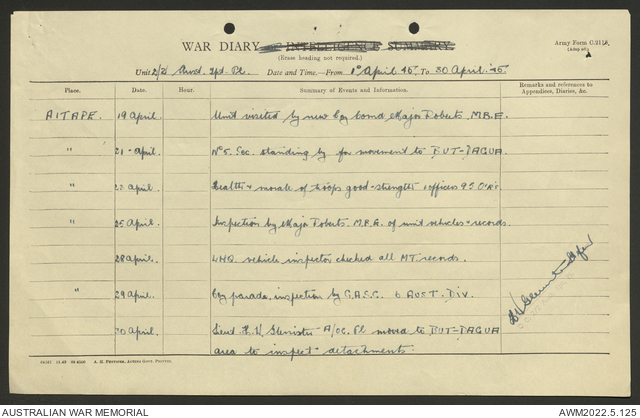 WAR DIARY or INTELLIGENCE SUMMARY.
Army Form C.2118.
(Erase heading not required.)
Unit 2/2 Ind. Pl. Date and Time.—From 1 April 45 To 30 April. 45.
Place. Date. Hour. Summary of Events and Information. Remarks and references to Appendices, Diaries, &c.
AITAPE. 19 April Unit visited by new Coy Comd Major Roberts M.B.E.
" 21 April. No 5. Sec. standing by for movement to BUT-DAGUA
" April Health & morale of troops good - strength 1 officers 95 O'R's.
" 25 April. Inspection by Major Roberts. M.B.E. of unit vehicles & records.
28 April. LHQ vehicle inspector checked all MT records.
" 29 April Coy parade inspection by 6 AUST. DIV.
30 April. Lieut A/OC. Pl moved to BUT-DAGUA
area to inspect detachments.
A. H. Pettifer, Acting Govt. Printer.
AUSTRALIAN WAR MEMORIAL
AWM2022.5.125